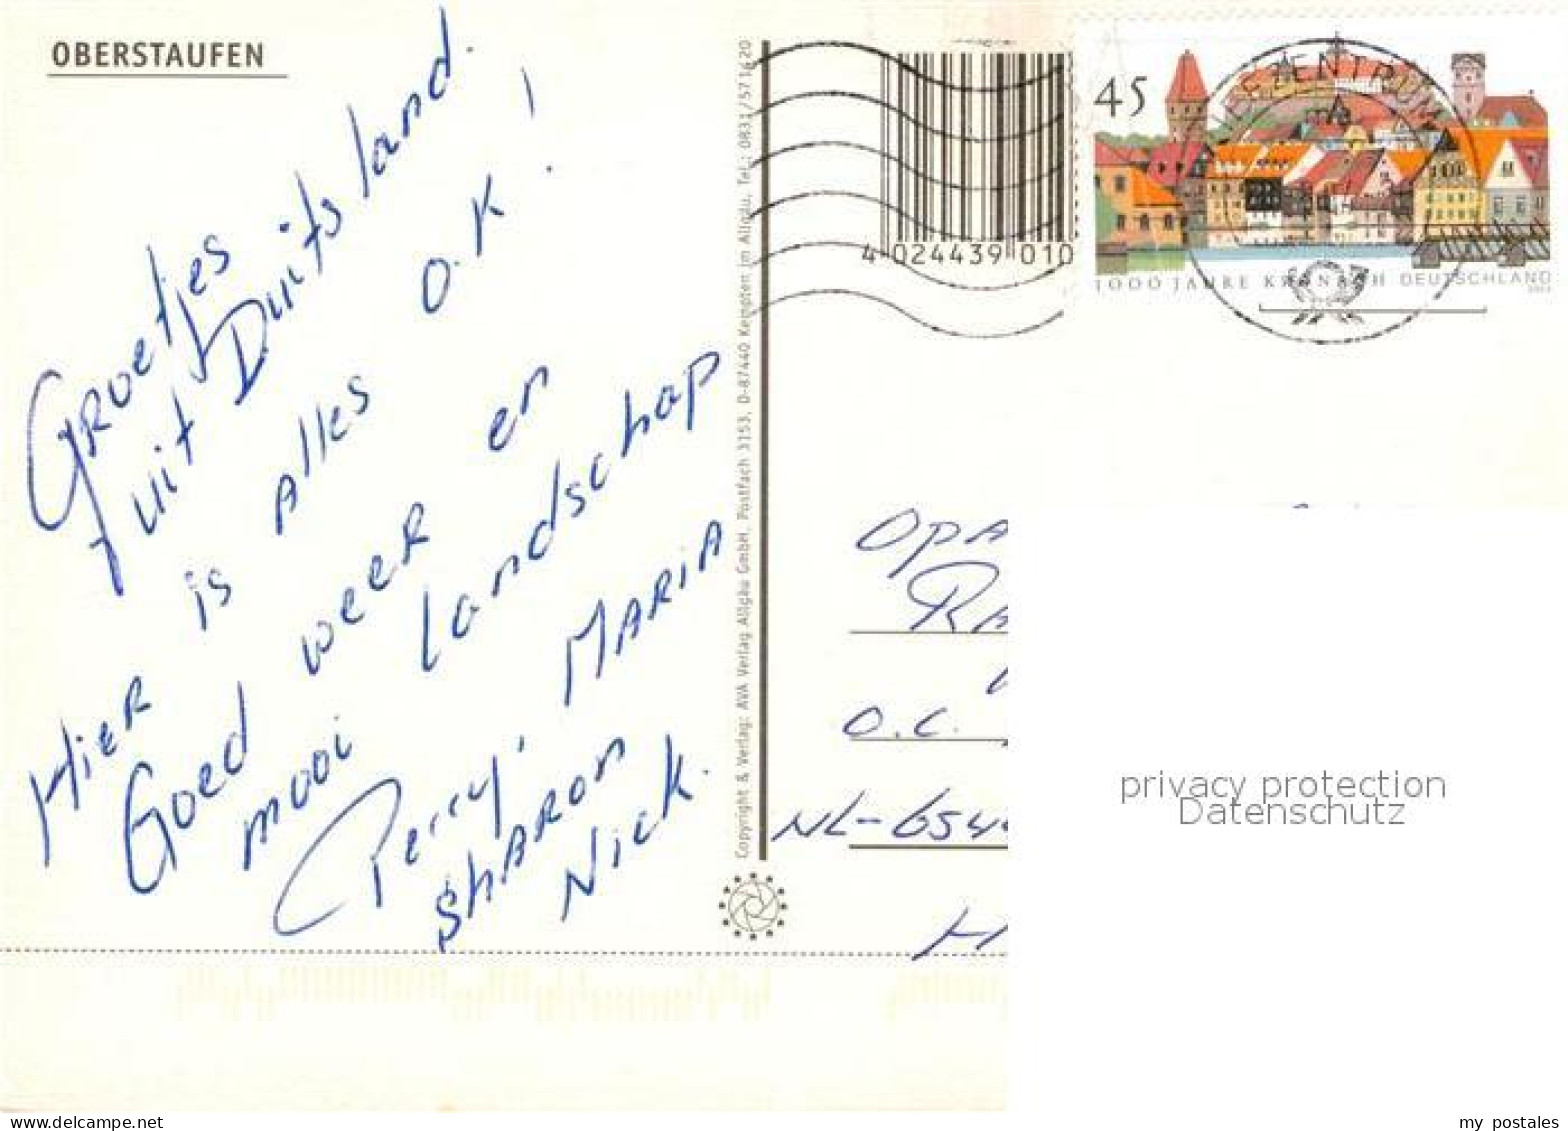 OBERSTAUFEN
Groetjes
uit Duitsland.
Hier is alles O.K!
Goed weer en
mooi landschap
Perry, MARIA
SHARON
Nick.
Copyright & Verlag: AVA Verlag Allgäu GmbH, Postfach 3153, D-87440 Kempten im Allgäu, Tel.: 0831/5716 20
4 024439 010
45
1000 JAHRE KRONACH DEUTSCHLAND
OPA
O.C.
NL-654
privacy protection
Datenschutz
my postales.net